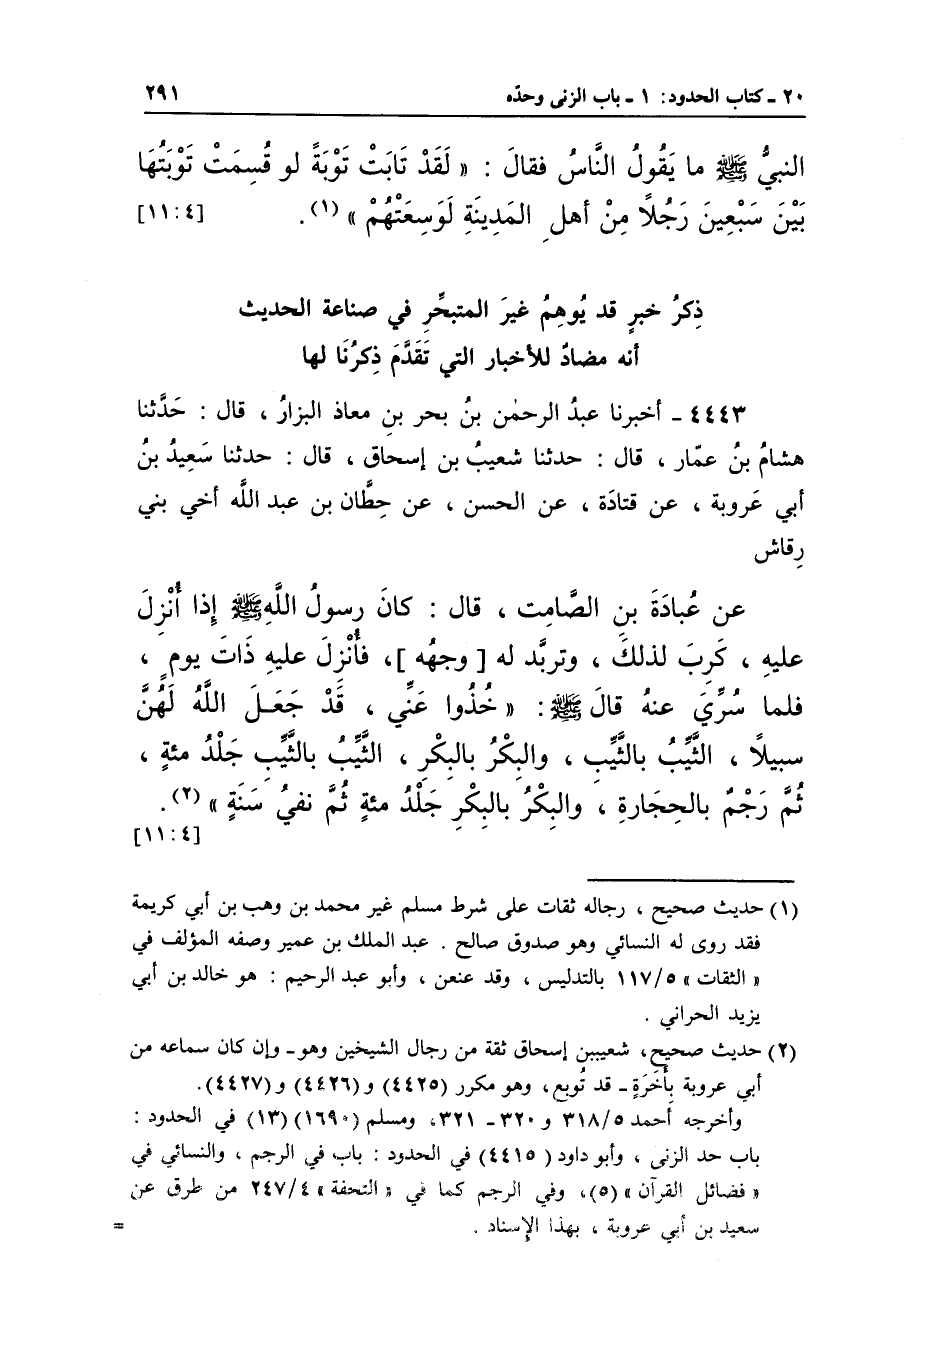 ٢٠ ـ كتاب الحدود: ١ ـ باب الزنى وحدّه ٢٩١
النبيُّ ﷺ ما يَقُولُ النَّاسُ فقالَ : « لَقَدْ تَابَتْ تَوْبَةً لو قُسِمَتْ تَوْبَتُهَا
بَيْنَ سَبْعِينَ رَجُلاً مِنْ أهلِ المَدِينَةِ لَوَسِعَتْهُمْ » (١). [٤:١١]
ذِكرُ خبرٍ قد يُوهِمُ غيرَ المتبحِّرِ في صناعة الحديث
أنه مضادٌ للأخبار التي تَقَدَّمَ ذِكرُنَا لها
٤٤٤٣ ـ أخبرنا عبدُ الرحمٰن بنُ بحر بن معاذ البزارُ ، قال : حَدَّثنا
هشامُ بنُ عمّار ، قال : حدثنا شعيبُ بن إسحاق ، قال : حدثنا سَعِيدُ بنُ
أبي عَروبة ، عن قتادَة ، عن الحسن ، عن حِطَّان بن عبد الله أخي بني
رِقاش
عن عُبادَةَ بن الصَّامت ، قال : كانَ رسولُ اللَّهِ ﷺ إذا أُنْزِلَ
عليهِ ، كَرِبَ لذلكَ ، وتربَّد له [ وجهُه ]، فأُنْزِلَ عليهِ ذَاتَ يومٍ ،
فلما سُرِّيَ عنهُ قالَ ﷺ : « خُذُوا عَنِّي ، قَدْ جَعَلَ اللَّهُ لَهُنَّ
سبيلاً ، الثَّيِّبُ بالثَّيِّبِ ، والبِكْرُ بالبِكْرِ ، الثَّيِّبُ بالثَّيِّبِ جَلْدُ مئةٍ ،
ثُمَّ رَجْمٌ بالحِجَارةِ ، والبِكْرُ بالبِكْرِ جَلْدُ مئةٍ ثُمَّ نفيُ سَنَةٍ » (٢).
[٤:١١]
(١) حديث صحيح ، رجاله ثقات على شرط مسلم غير محمد بن وهب بن أبي كريمة
فقد روى له النسائي وهو صدوق صالح . عبد الملك بن عمير وصفه المؤلف في
« الثقات » ١١٧/٥ بالتدليس ، وقد عنعن ، وأبو عبد الرحيم : هو خالد بن أبي
يزيد الحراني .
(٢) حديث صحيح، شعيببن إسحاق ثقة من رجال الشيخين وهو ـ وإن كان سماعه من
أبي عروبة بِأَخَرَةٍ ـ قد تُوبع، وهو مكرر (٤٤٢٥) و(٤٤٢٦) و(٤٤٢٧).
وأخرجه أحمد ٣١٨/٥ و ٣٢٠ ـ ٣٢١، ومسلم (١٦٩٠) (١٣) في الحدود :
باب حد الزنى ، وأبو داود ( ٤٤١٥) في الحدود : باب في الرجم ، والنسائي في
« فضائل القرآن » (٥)، وفي الرجم كما في « التحفة » ٢٤٧/٤ من طرق عن
سعيد بن أبي عروبة ، بهذا الإسناد . =